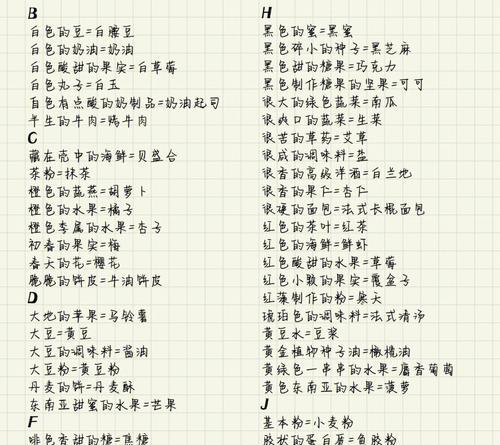 B
白色的豆=白腰豆
白色的奶油=奶油
白色酸甜的果实=白草莓
白色丸子=白玉
白色有点酸的奶制品=奶油起司
半生的牛肉=鞑牛肉
C
藏在壳中的海鲜=贝盛合
茶粉=抹茶
橙色的蔬燕=胡萝卜
橙色的水果=橘子
橙色李属的水果=杏子
初春的果实=梅
春天的花=樱花
脆脆的饼皮=牛油饼皮
D
大地的苹果=马铃薯
大豆=黄豆
大豆的调味料=酱油
大豆粉=黄豆粉
丹麦的饼=丹麦酥
东南亚甜蜜的水果=芒果
F
啡色香甜的糖=焦糖
H
黑色的蜜=黑蜜
黑色碎小的种子=黑芝麻
黑色甜的糖果=巧克力
黑色制作糖果的坚果=可可
很大的绿色蔬菜=南瓜
很爽口的蔬菜=生菜
很苦的草药=艾草
很咸的调味料=盐
很香的高级洋酒=白兰地
很香的果仁=杏仁
很硬的面包=法式长棍面包
红色的茶叶=红茶
红色的海鲜=鲜虾
红色酸甜的水果=草莓
红色小颗的果实=覆盆子
红藻制作的粉=柴夭
琥珀色的调味料=法式清汤
黄豆水=豆浆
黄金植物种子油=橄榄油
黄绿色一串串的水果=麝香葡萄
黄色东南亚的水果=菠萝
J
基本粉=小麦粉
胶状的蛋白质=鱼胶粉